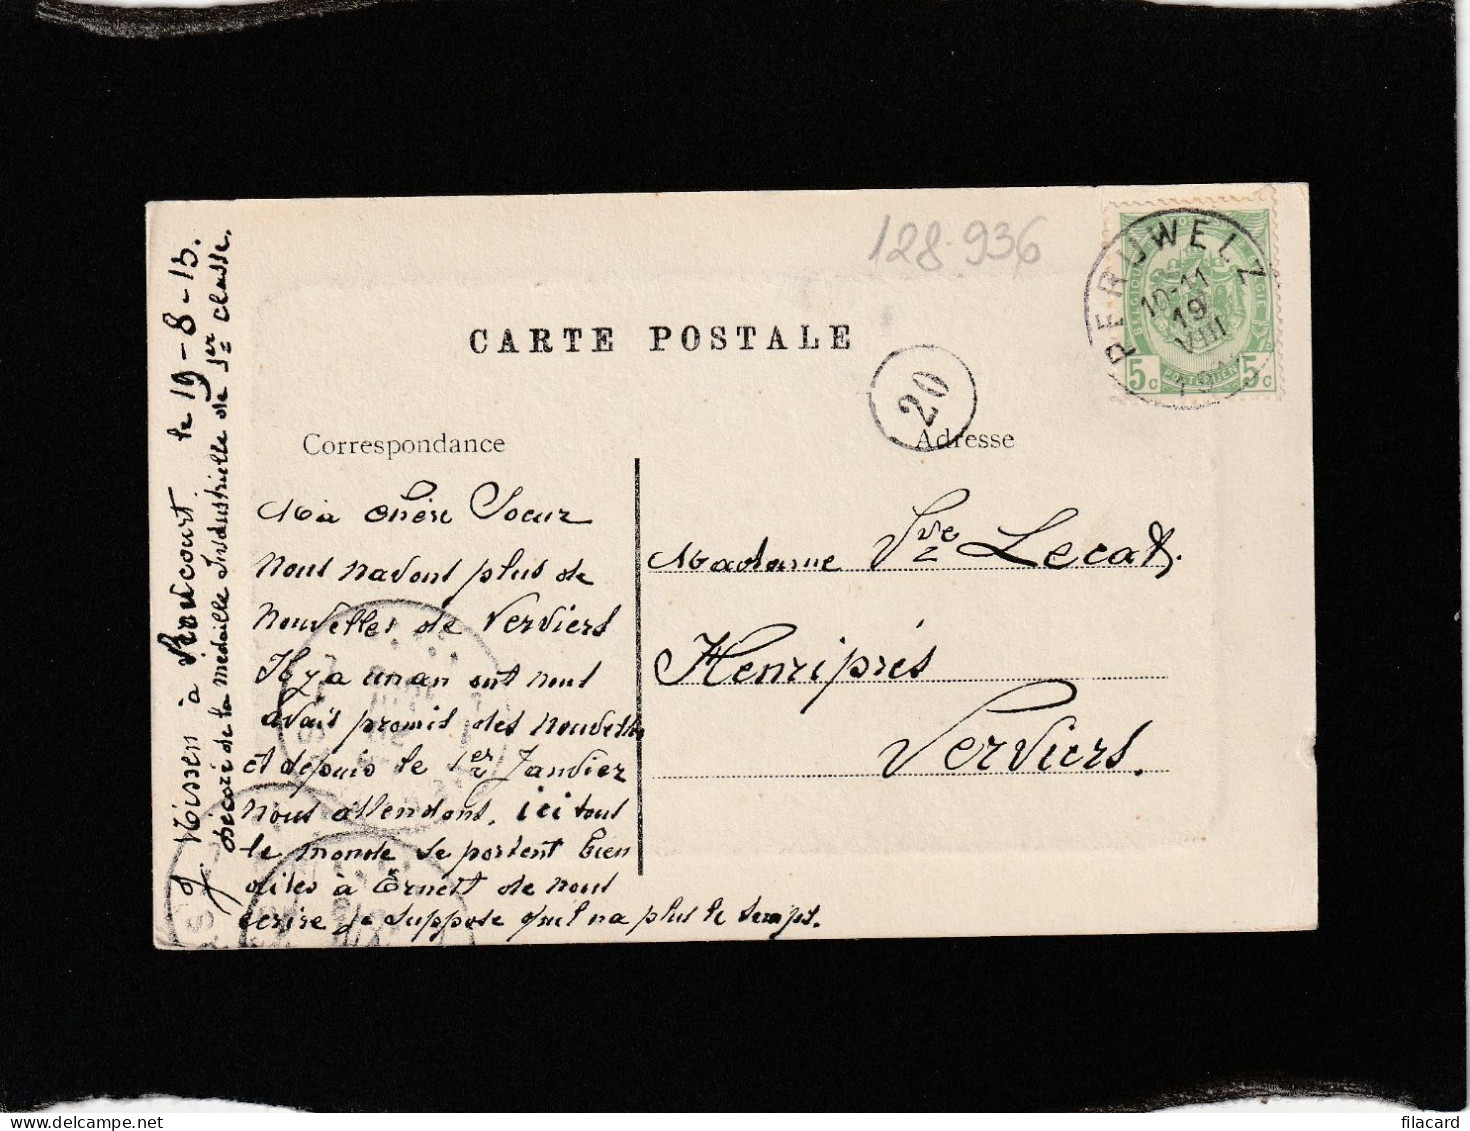 128.936
CARTE POSTALE
PERUWELZ
10-11
19
VIII
BELGIQUE
BELGIË
5c POSTERIJEN 5c
20
Correspondance
Adresse
Ma chère Soeur
nous navons plus de
nouvelles de Verviers
Il y a un an ont nous
avais promis des nouvelles
et depuis le 1er Janvier
nous attendons. ici tous
le monde se portent bien
dites à Ernest de nous
écrire je suppose quel na plus le temps.
Madame Vve Lecat.
Henriprés
Verviers.
J. Nissen à Roucourt le 19-8-13.
décoré de la médaille Industrielle de 1er classe.
filacard